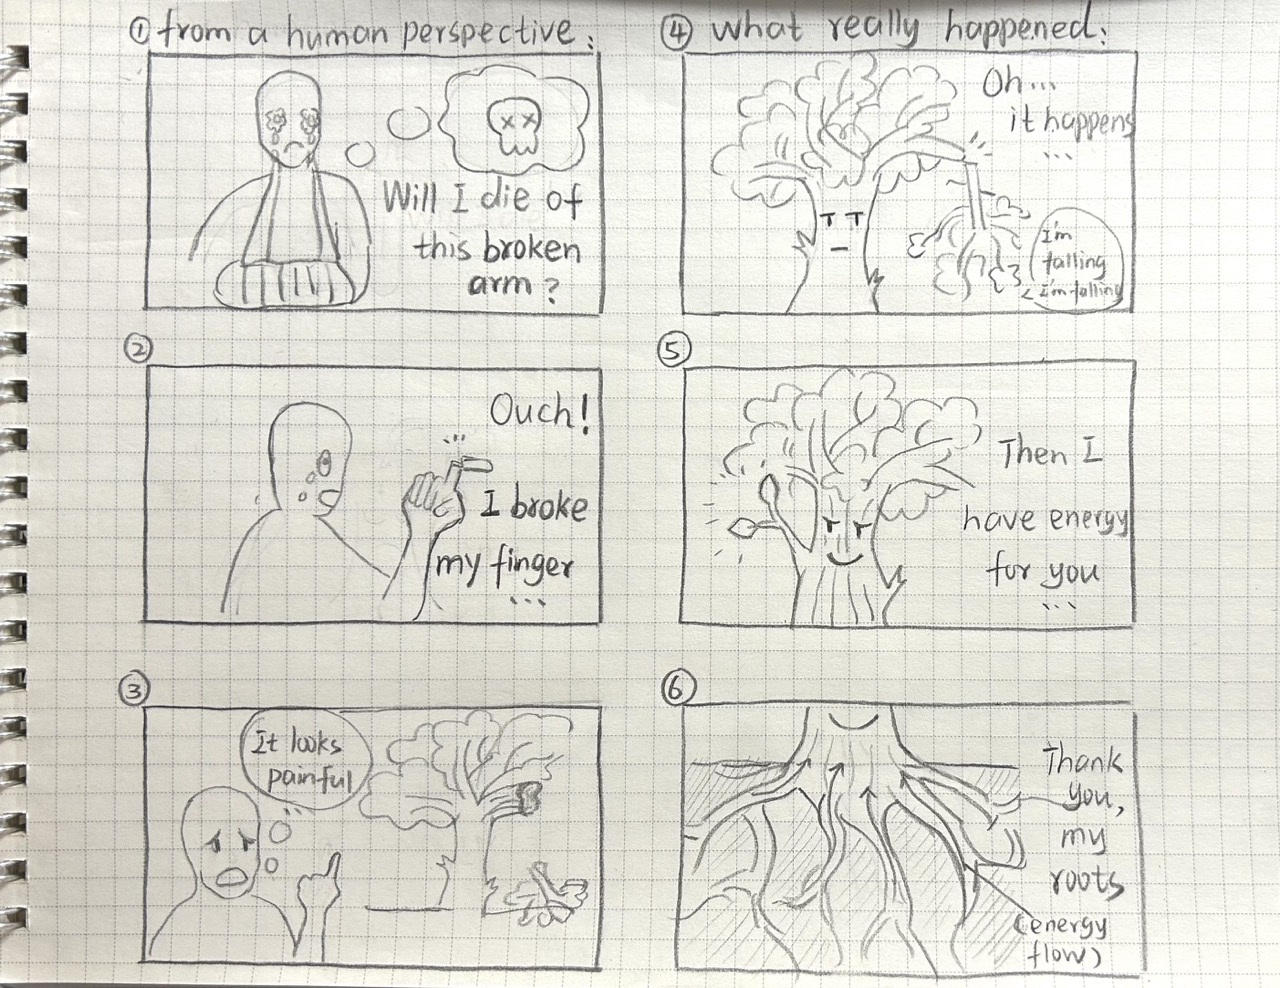 ① from a human perspective:
Will I die of
this broken
arm?
②
Ouch!
I broke
my finger
...
③
It looks
painful
④ what really happened:
Oh...
it happens
...
I'm
falling
I'm falling
⑤
Then I
have energy
for you
...
⑥
Thank
you,
my
roots
(energy
flow)